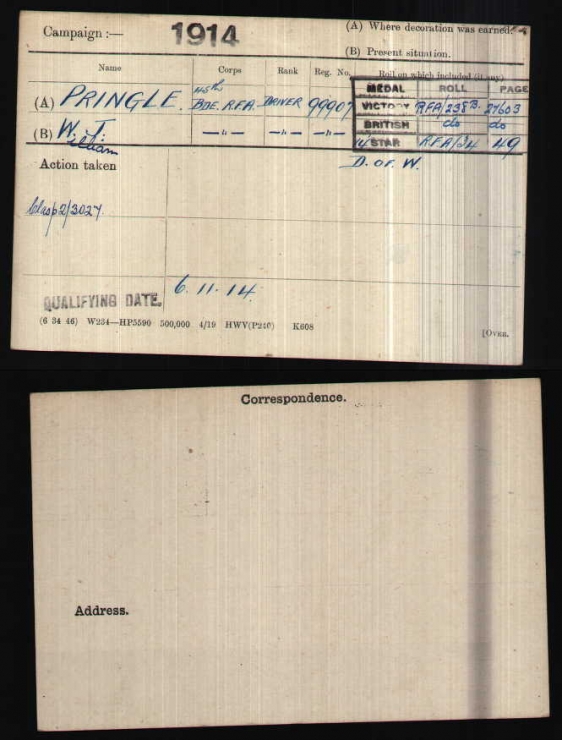 Campaign :— 1914
(A) Where decoration was earned.
(B) Present situation.
Name Corps Rank Reg. No. Roll on which included (if any)
MEDAL ROLL PAGE
45th
(A) PRINGLE. BDE. RFA. DRIVER 99907
VICTORY RFA/238B. 27603
BRITISH do do
(B) W. J. —"— —"— —"—
14 STAR RFA/24 49
William
Action taken D. of W.
Clasp 2/3027.
QUALIFYING DATE. 6. 11. 14.
(6 34 46) W234—HP5590 500,000 4/19 HWV(P240) K608
[OVER.
Correspondence.
Address.